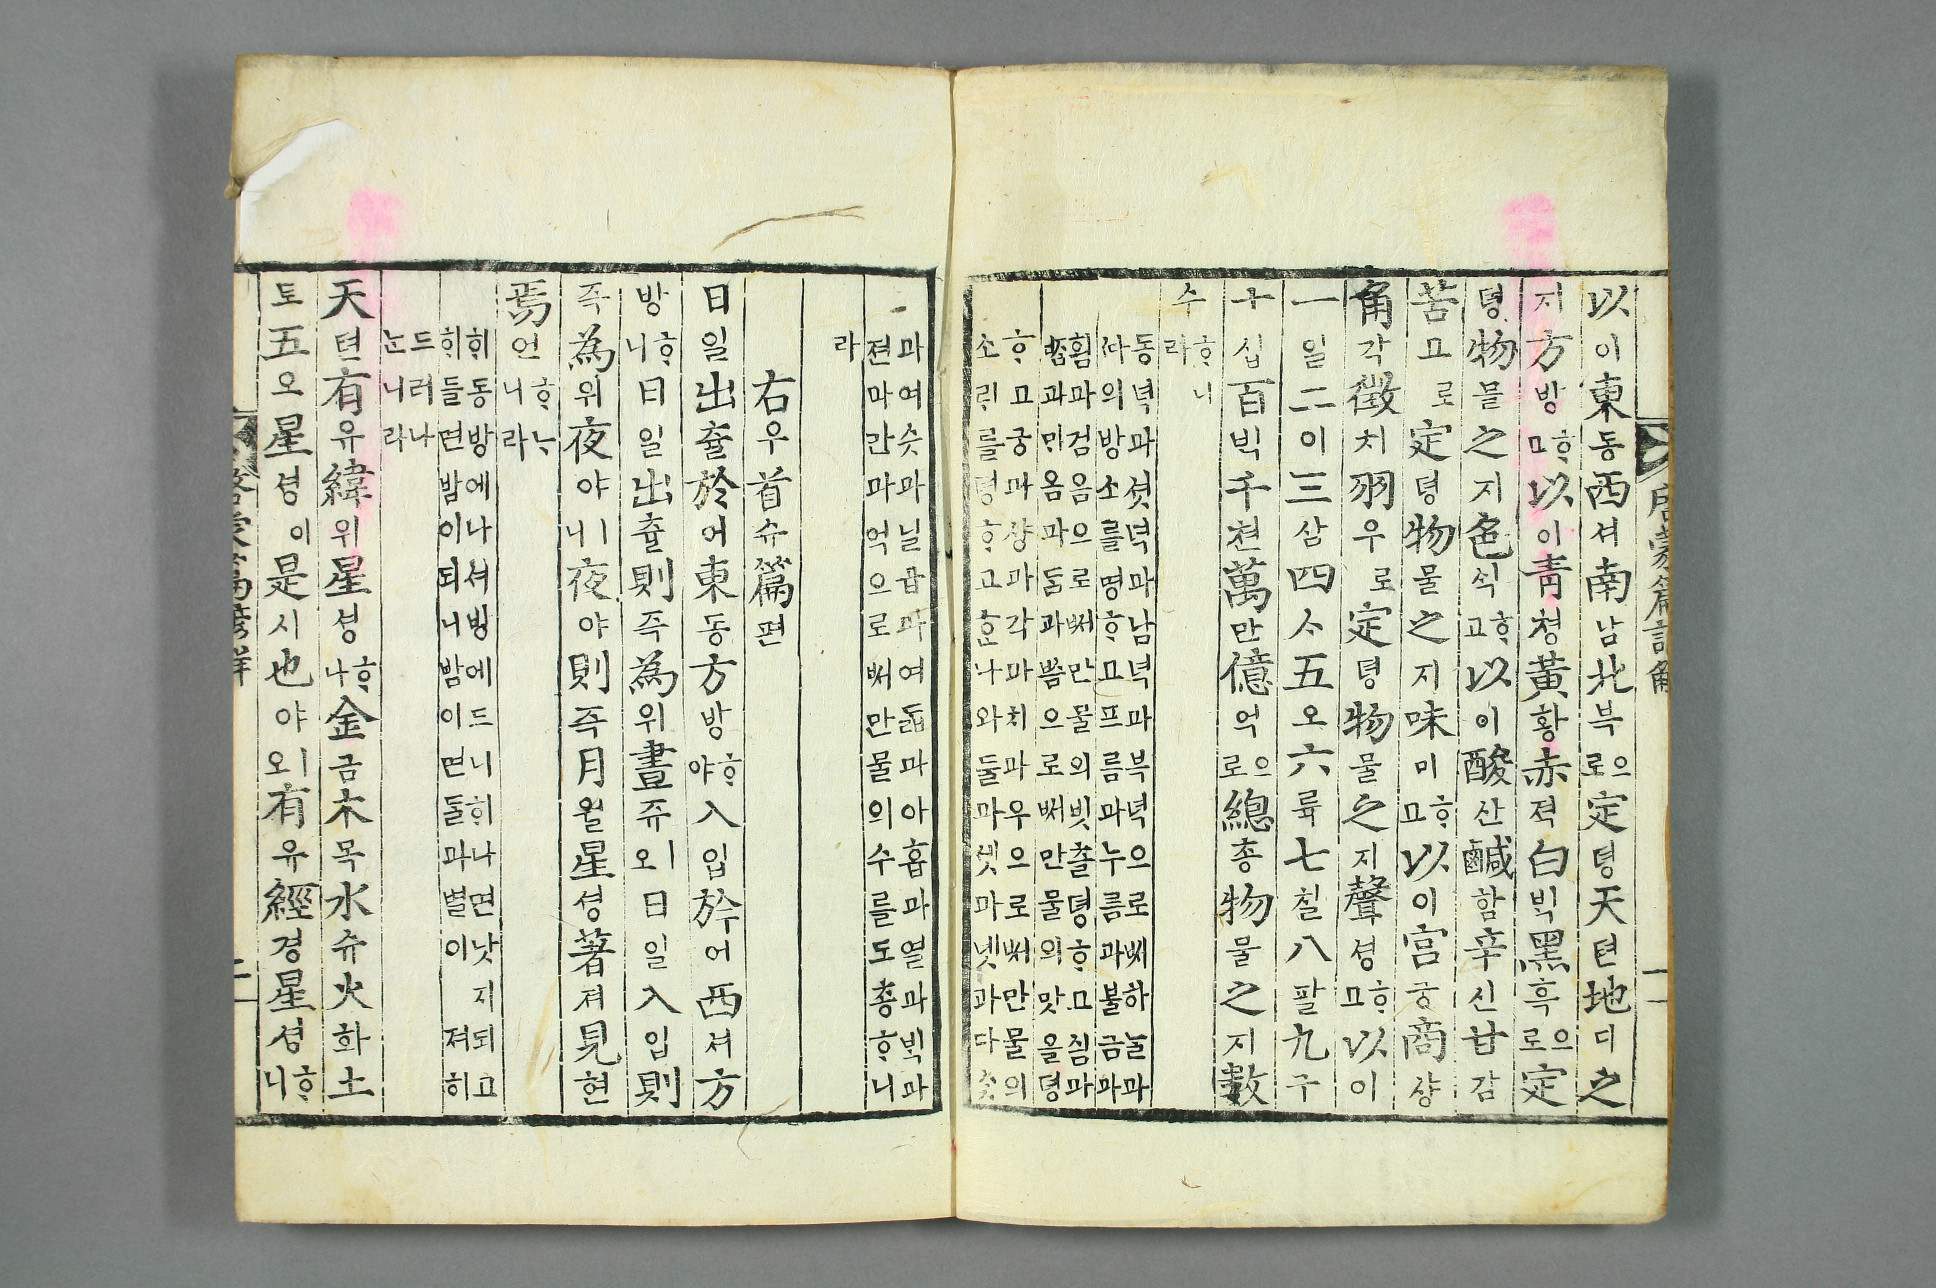 啓蒙篇諺解
二
以이東동西셔南남北븍으로定뎡天텬地디之
지方방ᄒᆞ고以이靑쳥黃황赤젹白ᄇᆡᆨ黑흑으로定
뎡物믈之지色ᄉᆡᆨᄒᆞ고以이酸산鹹함辛신甘감
苦고로定뎡物믈之지味미ᄒᆞ고以이宮궁商샹
角각徵치羽우로定뎡物믈之지聲셩ᄒᆞ고以이
一일二이三삼四ᄉᆞ五오六륙七칠八팔九구
十십百ᄇᆡᆨ千쳔萬만億억으로總총物믈之지數
수ᄒᆞ니라
동녁과셧녁과남녁과븍녁으로ᄡᅥ하ᄂᆞᆯ과
ᄯᅡ의방소를명ᄒᆞ고프름과누름과불금과
흼과검음으로ᄡᅥ만물의빗츨뎡ᄒᆞ고ᄶᅵᆷ과
ᄧᆞᆷ과ᄆᆡ옴과ᄃᆞᆷ과ᄡᅳᆷ으로ᄡᅥ만물의맛을뎡
ᄒᆞ고궁과샹과각과치과우으로ᄡᅥ만물의
소ᄅᆡ를뎡ᄒᆞ고ᄒᆞᆫ나와둘과셋과넷과다ᄉᆞᆺ
과여ᄉᆞᆺ과닐곱과여ᄃᆞᆲ과아홉과열과ᄇᆡᆨ과
쳔과만과억으로ᄡᅥ만물의수를도총ᄒᆞ니
라
右우首슈篇편
日일出츌於어東동方방ᄒᆞ야入입於어西셔方
방ᄒᆞ니日일出츌則즉爲위晝쥬ㅣ오日일入입則
즉爲위夜야ㅣ니夜야則즉月월星셩著져見현
焉언ᄒᆞᄂᆞ니라
ᄒᆡ동방에나셔셔방에드니ᄒᆡ나면낫지되고
ᄒᆡ들면밤이되니밤이면ᄃᆞᆯ과별이져히
드러나
ᄂᆞᆫ니라
天텬有유緯위星셩ᄒᆞ나金금木목水슈火화土
토五오星셩이是시也야ㅣ오有유經경星셩ᄒᆞ니
啓蒙篇諺解
二